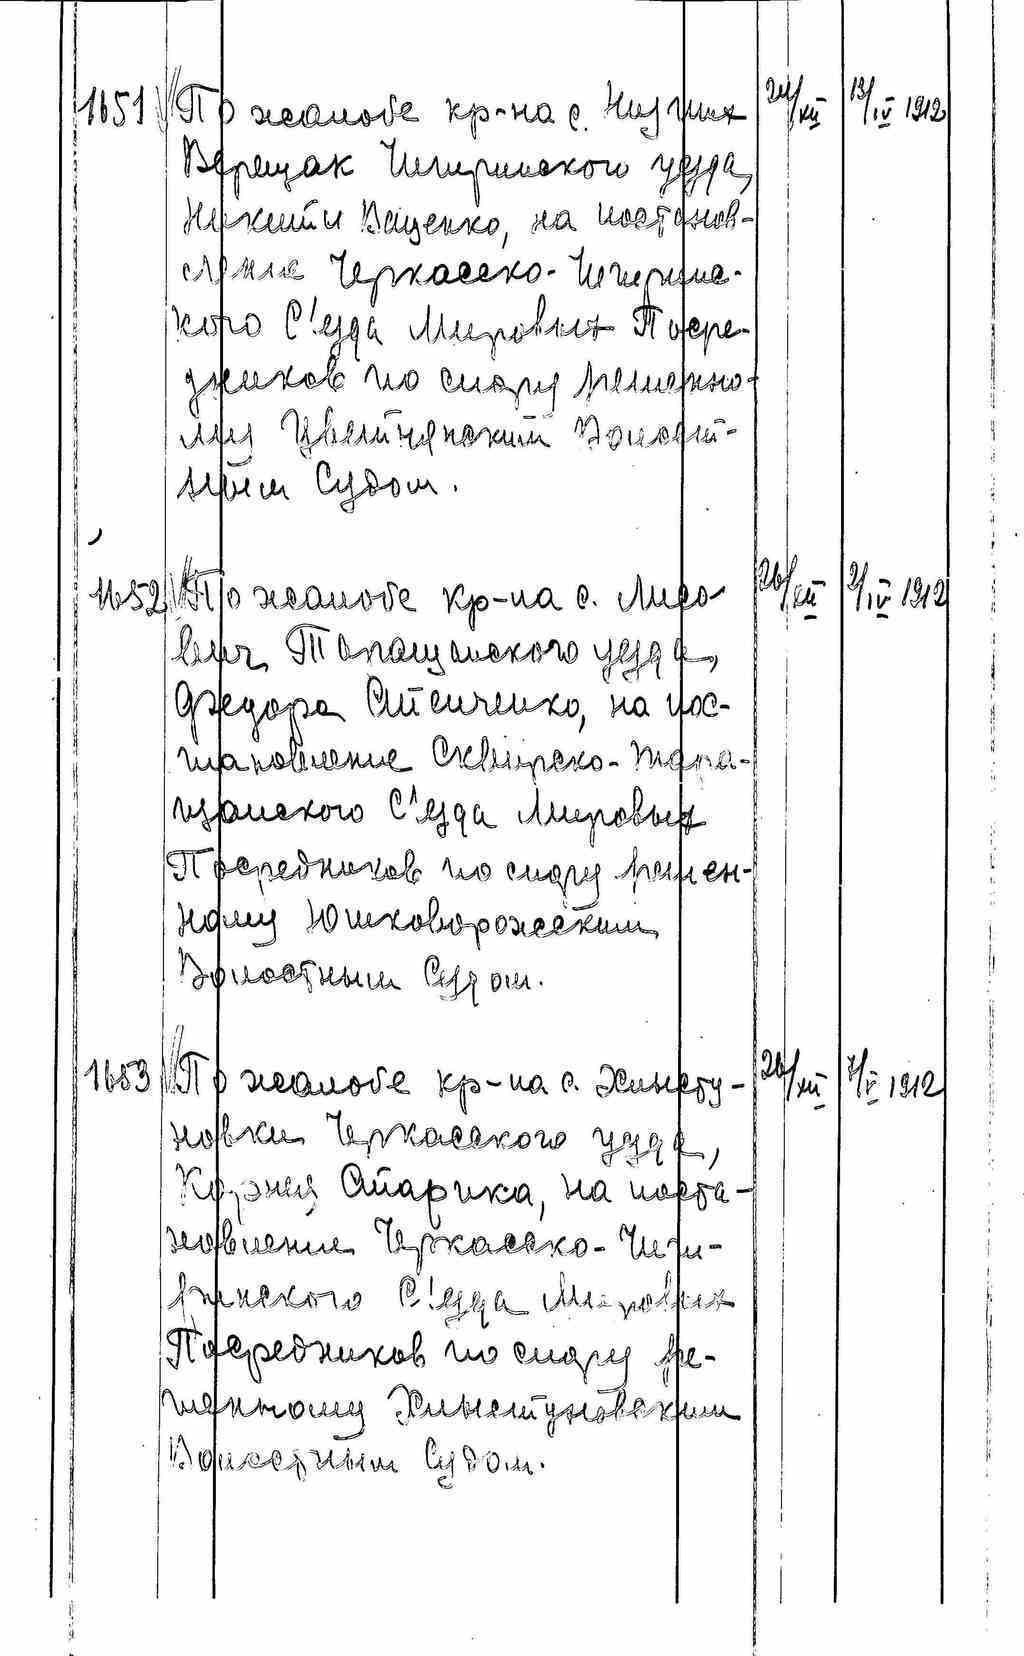 1651 По жалобе кр-на с. Нижних 24/XII 13/IV 1912
Верещак Чигиринского уезда,
Никиты Ваценко, на постанов-
ление Черкасско-Чигирине-
кого С'езда Мировых Посре-
дников по спору решенно-
му Цветнянским Волост-
ным Судом.
1652 По жалобе кр-на с. Лисо 26/XII 2/IV 1912
вич, Таращанского уезда,
Федора Стенченко, на пос-
тановление Сквирско-Тара-
щанского С'езда Мировых
Посредников по спору решен-
ному Юшковорожеским
Волостным Судом.
1653 По жалобе кр-на с. Хлысту- 26/XII 7/V 1912
новки Черкасского уезда,
Корнея Старика, на поста-
новление Черкасско-Чиги-
ринского С'езда Мировых
Посредников по спору ре-
шенному Хлыстуновским
Волостным Судом.